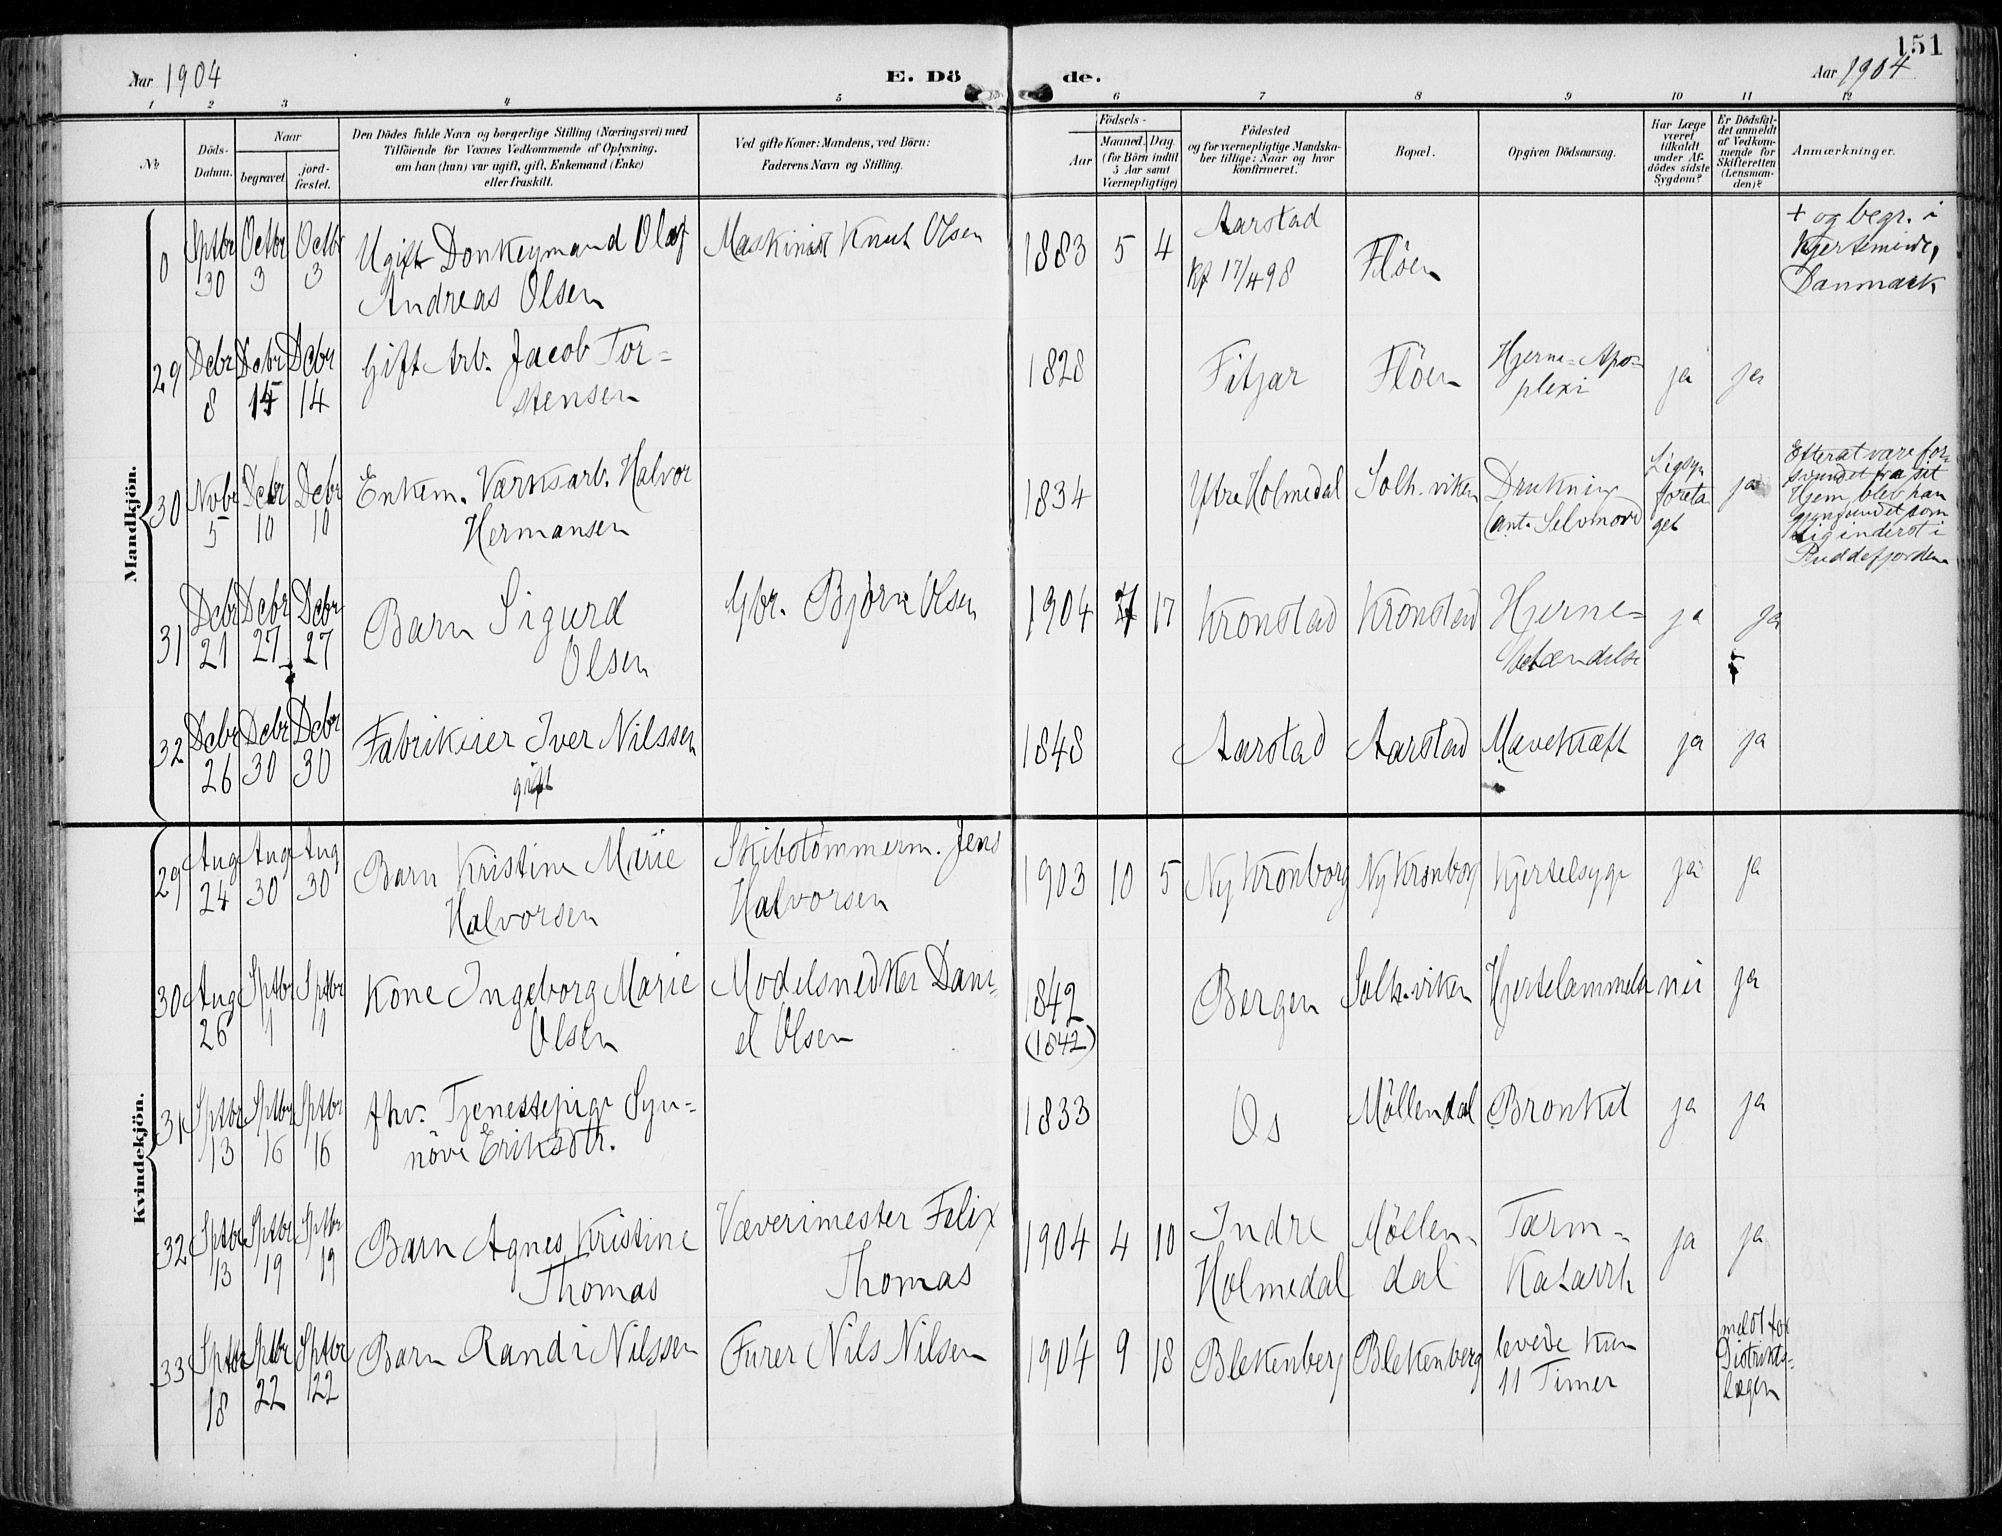 151
Aar 1904
E. Dö
de.
Aar 1904
1 2 3 4 5 6 7 8 9 10 11 12
No
Döds-
Datum.
Naar
begravet.
jord-
fæstet.
Den Dödes fulde Navn og borgerlige Stilling (Næringsvei) med
Tilföiende for Voxnes Vedkommende af Oplysning,
om han (hun) var ugift, gift, Enkemand (Enke)
eller fraskilt.
Ved gifte Koner: Mandens, ved Börn:
Faderens Navn og Stilling.
Födsels-
Aar
Maaned.
Dag
(for Börn indtil
5 Aar samt
Værnepligtige)
Födested
og for værnepligtige Mandska-
ber tillige: Naar og hvor
konfirmeret.
Bopæl.
Opgiven Dödsaarsag.
Har Læge
været
tilkaldt
under Af-
dödes sidste
Sygdom?
Er Dödsfal-
det anmeldt
af Vedkom-
mende for
Skifteretten
(Lensman-
den)?
Anmærkninger.
Mandkjön.
0
Sptbr
30
Octbr
3
Octbr
3
Ugift Donkeymand Olaf
Andreas Olsen
Maskinist Knut Olsen
1883 5 4
Aarstad
Kf 17/4 98
Flöen
+ og begr. i
Kjerteminde,
Danmark
29
Dcbr
8
Dcbr
14
Dcbr
14
Gift Arb. Jacob Tor-
stensen
1828
Fitjar
Flöen
Hjerne-Apo-
plexi
ja
ja
30
Nvbr
5
Dcbr
10
Dcbr
10
Enkem. Værksarb. Halvor
Hermansen
1834
Ytre Holmedal
Solh.viken
Drukning
(ant. Selvmord
Ligsyn
foreta
get
ja
Efterat være for-
svundet fra sit
Hjem, blev han
gjenfundet som
Lig inderst i
Puddefjorden
31
Dcbr
21
Dcbr
27
Dcbr
27
Barn Sigurd
Olsen
Gbr. Björn Olsen
1904
17
Kronstad
Kronstad
Hjerne-
betændelse
ja
ja
32
Dcbr
26
Dcbr
30
Dcbr
30
Fabrikeier Iver Nilssen
gift
1848
Aarstad
Aarstad
Mavekræft
ja
ja
Kvindekjön.
29
Aug
24
Aug
30
Aug
30
Barn Kristine Marie
Halvorsen
Skibstömmerm. Jens
Halvorsen
1903 10 5
Ny Kronborg
Ny Kronborg
Kjertelsyge
ja
ja
30
Aug
26
Sptbr
1
Sptbr
1
Kone Ingeborg Marie
Olsen
Modelsnedker Dani-
el Olsen
1842
(1842)
Bergen
Solh.viken
Hjertelammelse
nei
ja
31
Sptbr
13
Sptbr
16
Sptbr
16
fhv. Tjenestepige Syn-
növe Eriksdtr.
1833
Os
Möllendal
Bronkit
ja
ja
32
Sptbr
13
Sptbr
19
Sptbr
19
Barn Agnes Kristine
Thomas
Væverimester Felix
Thomas
1904 4 10
Indre
Holmedal
Möllen-
dal
Tarm-
Katarrh
ja
ja
33
Sptbr
18
Sptbr
22
Sptbr
22
Barn Randi Nilssen
Furer Nils Nilsen
1904 9 18
Blekenberg
Blekenberg
levede kun
11 Timer
meldt for
Distrikts-
lægen